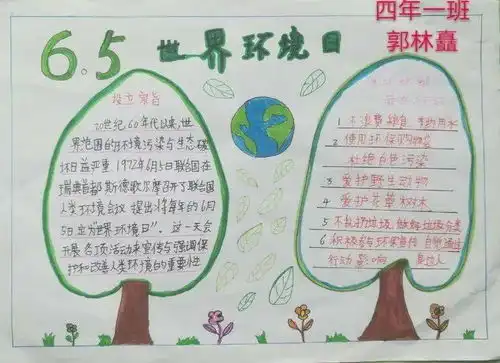 四年一班
郭林矗
6.5 世界环境日
设立宗旨
20世纪60年代以来,世
界范围的环境污染与生态破
坏日益严重 1972年6月5日联合国在
瑞典首都斯德歌尔摩召开了联合国
人类环境会议 提出将每年的6月
5日定为"世界环境日". 这一天会
开展各项活动来宣传与强调保
护和改善人类环境的重要性
1 不浪费粮食 节约用水
2 使用环保购物袋
杜绝白色污染
3 爱护野生动物
4 爱护花草树木
5 不乱扔垃圾 做好垃圾分类
6 积极参与环保宣传 自觉通过
行动影响 身边人